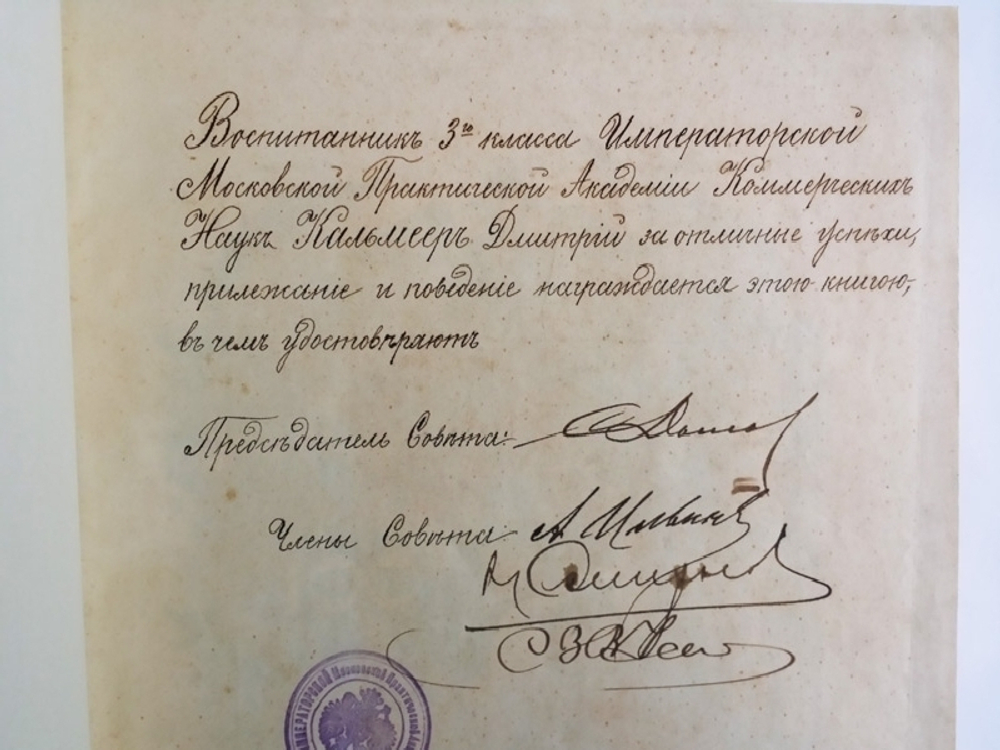 Воспитанникъ 3го класса Императорской
Московской Практической Академіи Коммерческихъ
Наукъ Кальмееръ Дмитрій за отличные успѣхи,
прилежаніе и поведеніе награждается этою книгою,
въ чемъ удостовѣряютъ
Предсѣдатель Совѣта:
Члены Совѣта: А
ИМПЕРАТОРСКОЙ Московской Практической